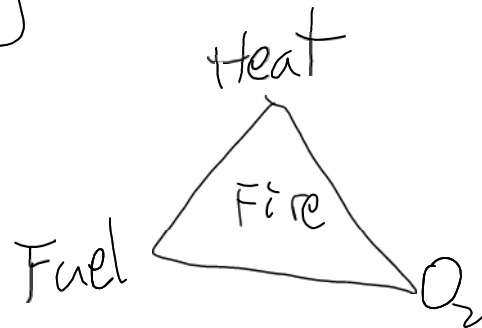 Heat
Fire
Fuel
O₂